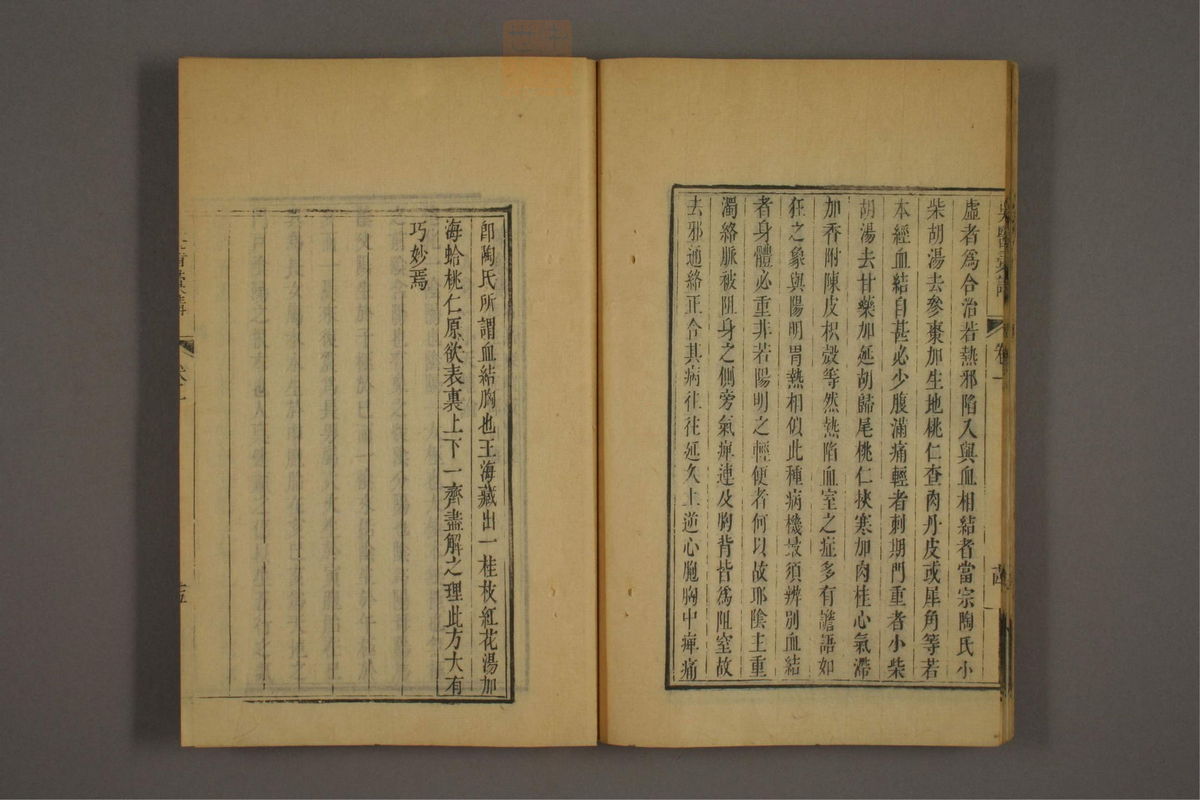 吳醫彙講
卷一
虛者爲合治若熱邪陷入與血相結者當宗陶氏小
柴胡湯去參棗加生地桃仁查肉丹皮或犀角等若
本經血結自甚必少腹滿痛輕者刺期門重者小柴
胡湯去甘藥加延胡歸尾桃仁挾寒加肉桂心氣滯
加香附陳皮枳殼等然熱陷血室之症多有譫語如
狂之象與陽明胃熱相似此種病機最須辨別血結
者身體必重非若陽明之輕便者何以故耶陰主重
濁絡脈被阻身之側旁氣痺連及胸背皆爲阻窒故
去邪通絡正合其病往往延久上逆心胞胸中痺痛
卽陶氏所謂血結胸也王海藏出一桂枝紅花湯加
海蛤桃仁原欲表裏上下一齊盡解之理此方大有
巧妙焉